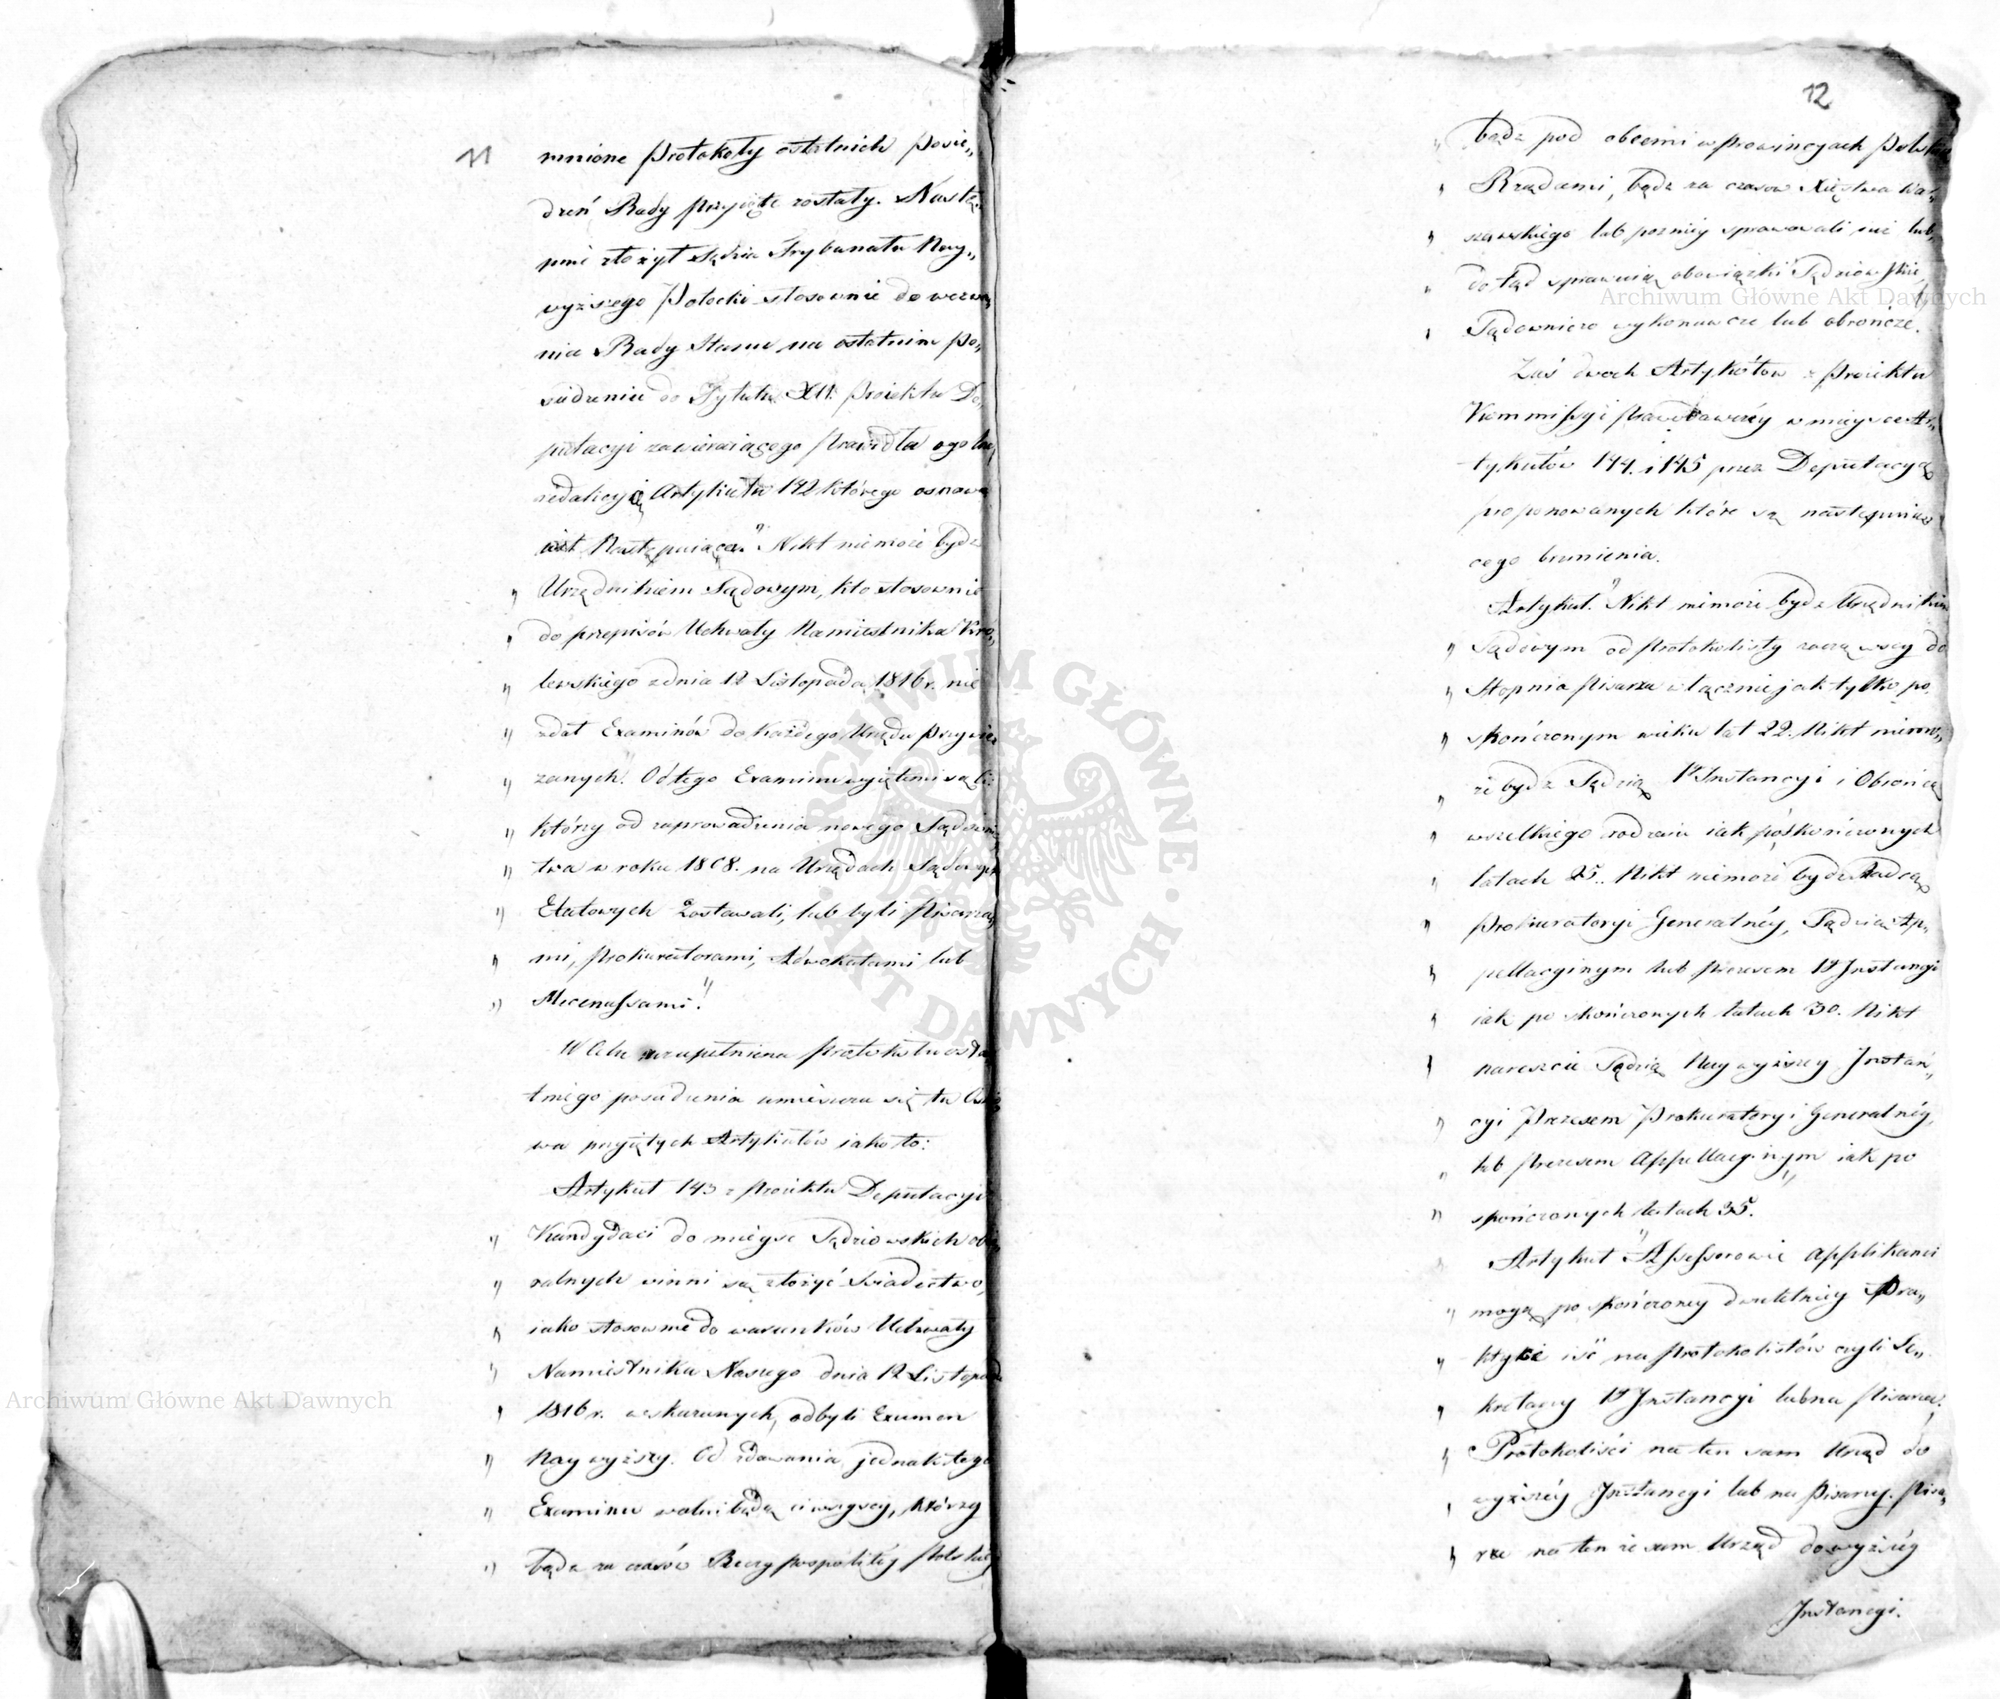 11
mnione Protokoły ostatnich Posie„
dzeń Rady przyięte zostały. Nastę„
pnie złożył Sędzia Trybunału Nay„
wyższego Potocki stosownie do wezwa„
nia Rady Stanu na ostatnim po„
siedzeniu do Tytułu XII. Proiektu De„
putacyi zawieraiącego prawidła ogolne
redakcyią Artykułu 142 którego osnowa
iest następuiąca. "Nikt niemoże bydź
„ Urzędnikiem Sądowym, kto stosownie
„ do przepisów Uchwały Namiestnika Kró„
„ lewskiego z dnia 12 Listopada 1816 r. nie
„ zdał Examinów do każdego Urzędu przywią„
„ zanych. Od tego Examinu wyiętemi są ci:
„ którzy od zaprowadzenia nowego Sądowni„
„ twa w roku 1808. na Urzędach Sądowych
„ Etatowych zostawali, lub byli Pisarza„
„ mi, Prokuratorami, Adwokatami lub
„ Mecenassami."
W celu uzupełnienia Protokołu osta„
tniego posiedzenia umieszcza się tu osno„
wa przyiętych Artykułów iako to:
Artykuł 143 z Proiektu Deputacyi
„ Kandydaci do mieysc Sędziowskich obie„
„ ralnych winni są złożyć świadectwo,
„ iako stosownie do warunków Uchwały
„ Namiestnika Naszego dnia 12 Listopada
„ 1816 r. wskazanych, odbyli Examen
„ Naywyższy. Od zdawania jednak tego
„ Examinu wolni będą ci wszyscy, którzy
„ bądź za czasów Rzeczypospolitéy Polskiéy
12
„ bądź pod obcemi w prowincyach Polskich
„ Rządami, bądź za czasow Xięstwa War„
„ szawskiego lub pozniey sprawowali iuż lub
„ dotąd sprawuią obowiązki Sędziowskie,
„ Sądowniczo wykonawcze lub obrończe.
Zaś dwóch Artykułów z Proiektu
Kommissyi Prawodawczéy w mieysce Ar„
tykułów 144. i 145 przez Deputacyą
proponowanych które są następuią„
cego brzmienia.
Artykuł. "Nikt niemoże bydź Urzędnikiem
„ Sądowym od Protokolisty zacząwszy do
„ Stopnia Pisarza włącznie jak tylko po
„ skończonym wieku lat 22. Nikt niemo„
„ że bydź Sędzią 1éy Instancyi i Obrońcą
„ wszelkiego rodzaiu iak po skończonych
„ latach 25.. Nikt niemoże bydź Radcą
„ Prokuratoryi Generalnéy, Sędzią Ap„
„ pellacyinym lub Prezesem 1éy Instancyi
„ iak po skończonych latach 30. Nikt
„ nareszcie Sędzią Naywyższey Instan„
„ cyi Prezesem Prokuratoryi Generalnéy,
„ lub Prezesem Appellacyinym iak po
„ skończonych latach 35.
Artykuł "Assessorowie Applikanci
„ mogą po skończoney dwuletniéy Pra„
„ ktyce iść na Protokolistów czyli Se„
„ kretarzy 1éy Instancyi lub na Pisarzy.
„ Protokoliści na ten sam Urząd do
„ wyższéy Instancyi lub na Pisarzy. Pisa„
„ rze na ten że sam Urząd do wyższéy
Instancyi.
ARCHIWUM GŁÓWNE · AKT DAWNYCH ·
Archiwum Główne Akt Dawnych
Archiwum Główne Akt Dawnych